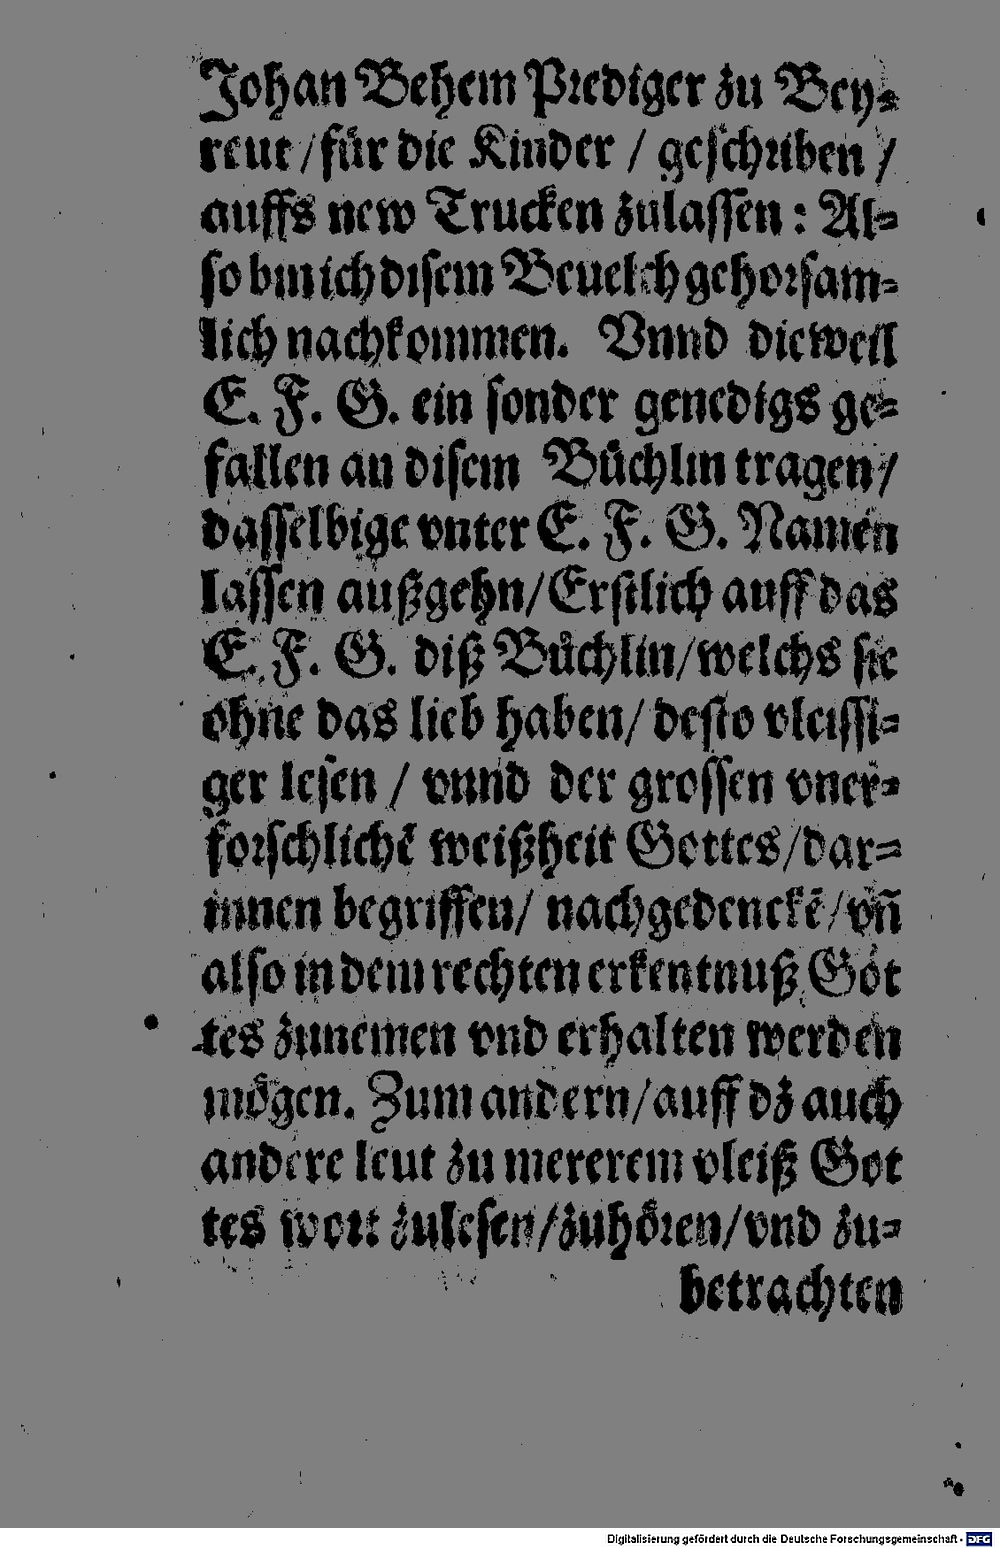 Johan Behem Prediger zu Bey⸗
reut / für die Kinder / geschriben /
auffs new Trucken zulassen : Al⸗
so bin ich disem Beuelch gehorsam⸗
lich nachkommen. Vnnd dieweil
E. F. G. ein sonder genedigs ge⸗
fallen an disem Bůchlin tragen /
dasselbige vnter E. F. G. Namen
lassen außgehn / Erstlich auff das
E. F. G. diß Bůchlin / welchs sie
ohne das lieb haben / desto vleissi⸗
ger lesen / vnnd der grossen vner⸗
forschlichē weißheit Gottes / dar⸗
innen begriffen / nachgedenckē / vñ
also in dem rechten erkentnuß Got
tes zunemen vnd erhalten werden
mögen. Zum andern / auff dz auch
andere leut zu mererem vleiß Got
tes wort zulesen / zuhören / vnd zu⸗
betrachten
Digitalisierung gefördert durch die Deutsche Forschungsgemeinschaft - DFG